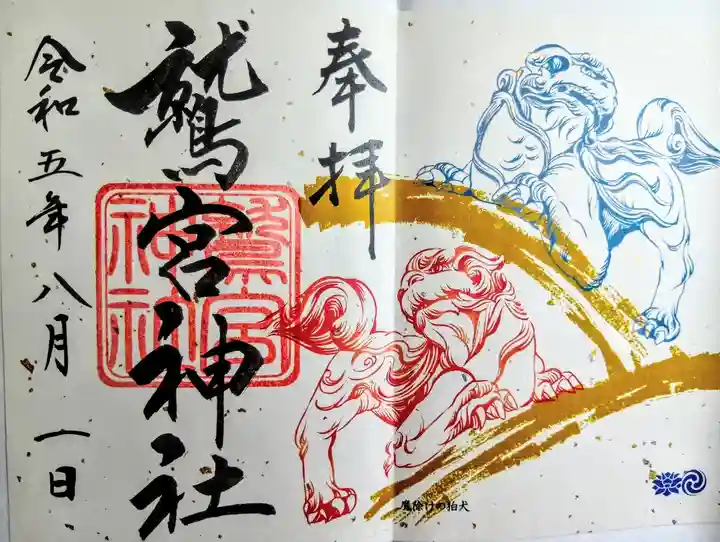 奉拝
鷲宮神社
鷲宮神社
令和五年八月一日
魔除けの狛犬